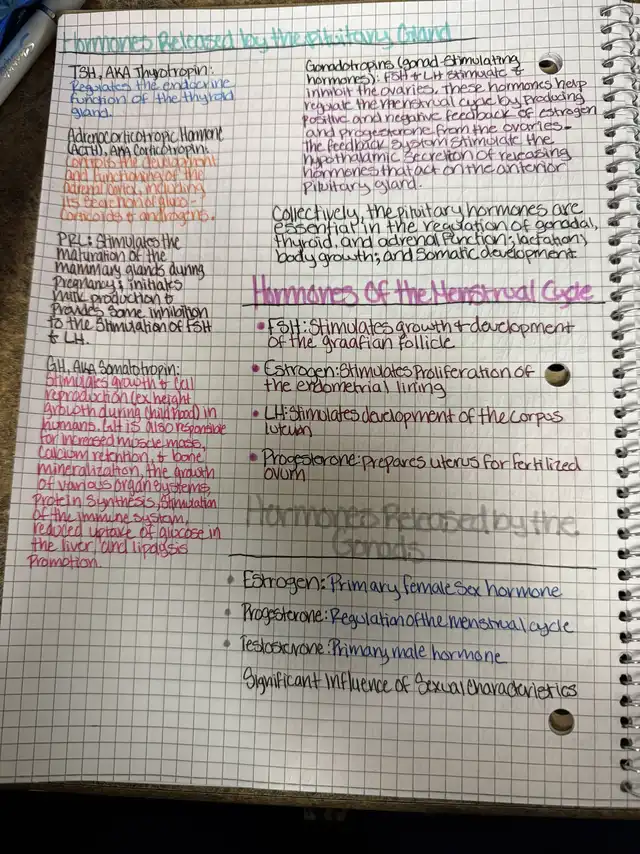 Hormones Released by the Pituitary Gland
TSH, AKA Thyrotropin:
Regulates the endocrine
function of the thyroid
gland.
Adrenocorticotropic Hormone
(ACTH), AKA Corticotropin:
Controls the development
and functioning of the
adrenal cortex, including
its secretion of gluco-
corticoids & androgens.
PRL: Stimulates the
maturation of the
mammary glands during
pregnancy; initiates
milk production &
provides some inhibition
to the stimulation of FSH
& LH.
GH, AKA Somatotropin:
Stimulates growth & cell
reproduction (ex height
growth during childhood) in
humans. GH is also responsible
for increased muscle mass,
calcium retention, & bone
mineralization, the growth
of various organ systems
protein synthesis, stimulation
of the immune system,
reduced uptake of glucose in
the liver, and lipolysis
promotion.
Gonadotropins (gonad-stimulating
hormones): FSH & LH stimulate &
inhibit the ovaries. These hormones help
regulate the menstrual cycle by producing
positive and negative feedback of estrogen
and progesterone from the ovaries-
the feedback system stimulate the
hypothalamic secretion of releasing
hormones that act on the anterior
pituitary gland.
Collectively, the pituitary hormones are
essential in the regulation of gonadal,
thyroid, and adrenal function; lactation;
body growth; and somatic development
Hormones Of the Menstrual Cycle
• FSH: Stimulates growth & development
of the graafian follicle
• Estrogen: Stimulates Proliferation of
the endometrial lining
• LH: Stimulates development of the corpus
luteum
• Progesterone: prepares uterus for fertilized
ovum
Hormones Released by the
Gonads
• Estrogen: Primary female sex hormone
• Progesterone: Regulation of the menstrual cycle
• Testosterone: Primary male hormone
Significant Influence of Sexual Characteristics